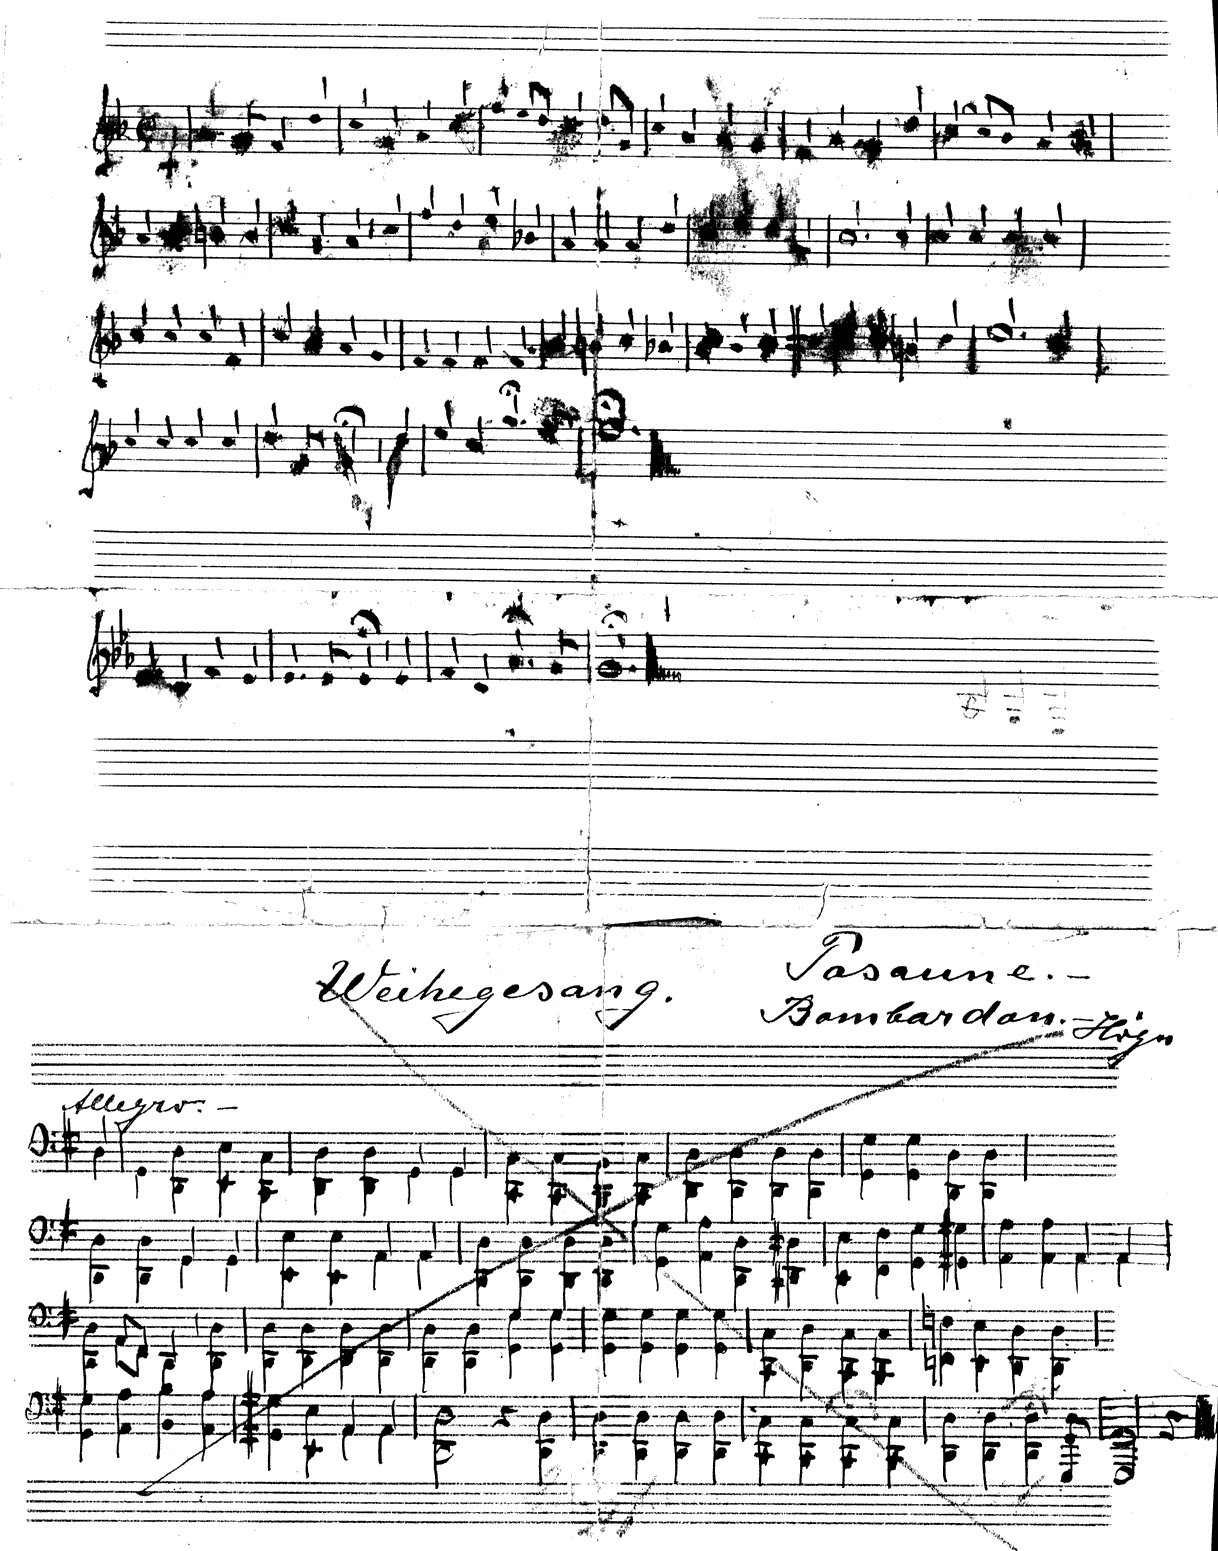 Weihegesang.
Posaune.-
Bombardon.-
Allegro.-